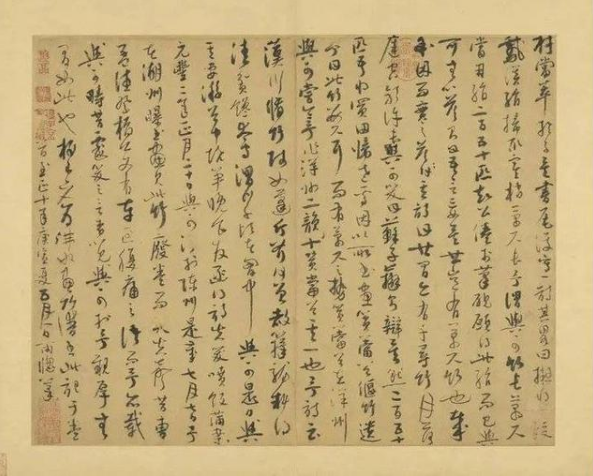 材當萃於子矣書尾復寫一詩其略曰擬將一段
鵝溪絹掃取寒梢萬尺長予謂與可竹長萬尺
當用絹二百五十匹知公倦於筆硯願得此絹而已與
可無以答則曰吾言妄矣世豈有萬尺竹也哉
余因而實之答其詩曰世間亦有千尋竹月落
庭空影許長與可笑曰蘇子辯則辯矣然二百五十
匹吾將買田歸老焉因以所畫篔簹谷偃竹遺
予曰此竹數尺耳而有萬尺之勢篔簹谷在洋州
與可嘗令予作洋州三十詠篔簹谷其一也予詩云
漢川脩竹賤如蓬斤斧何曾赦籜龍料得
清貧饞太守渭川千畝在胸中與可是日與
其妻游谷中燒筍晚食發函得詩失笑噴飯滿案
元豐二年正月二十日與可沒於陳州是歲七月七日予
在湖州曝書畫見此竹廢卷而哭失聲昔曹
孟德祭橋公文有車過腹痛之語而予亦載
與可疇昔戲笑之言者以見與可於予親厚無
間如此也
至正十年庚寅夏五月一日